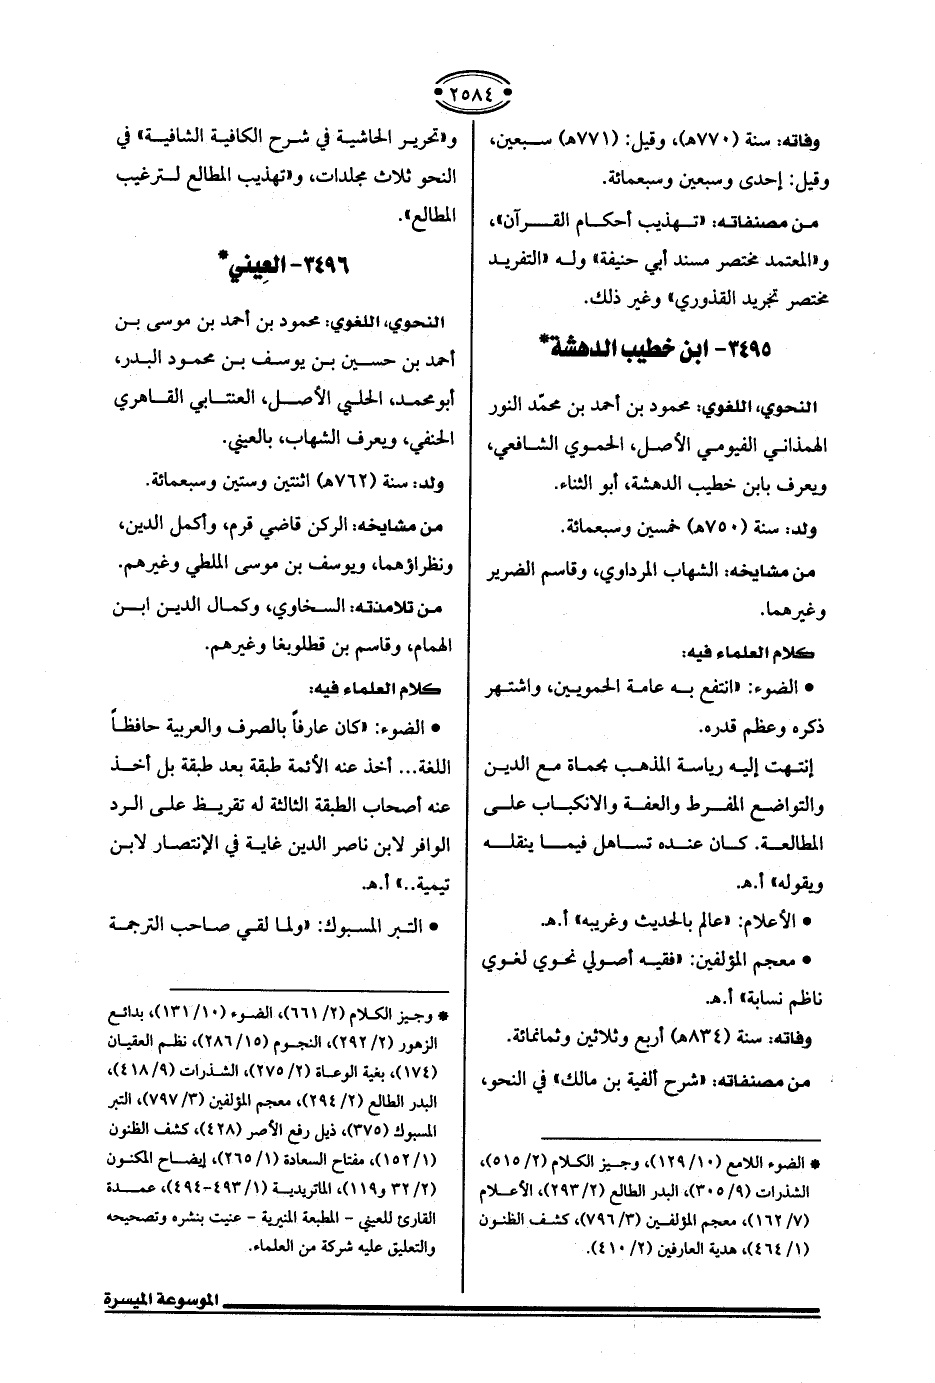 ٢٥٨٤
وفاته: سنة (٧٧٠هـ)، وقيل: (٧٧١هـ) سبعين،
وقيل: إحدى وسبعين وسبعمائة.
من مصنفاته: «تهذيب أحكام القرآن»،
و«المعتمد مختصر مسند أبي حنيفة» وله «التفريد
مختصر تجريد القدوري» وغير ذلك.
٣٤٩٥- ابن خطيب الدهشة*
النحوي، اللغوي: محمود بن أحمد بن محمّد النور
الهمذاني الفيومي الأصل، الحموي الشافعي،
ويعرف بابن خطيب الدهشة، أبو الثناء.
ولد: سنة (٧٥٠هـ) خمسين وسبعمائة.
من مشايخه: الشهاب المرداوي، وقاسم الضرير
وغيرهما.
كلام العلماء فيه:
• الضوء: «انتفع به عامة الحمويين، واشتهر
ذكره وعظم قدره.
إنتهت إليه رياسة المذهب بحماة مع الدين
والتواضع المفرط والعفة والانكباب على
المطالعة. كان عنده تساهل فيما ينقله
ويقوله» أ.هـ.
• الأعلام: «عالم بالحديث وغريبه» أ.هـ.
• معجم المؤلفين: «فقيه أصولي نحوي لغوي
ناظم نسابة» أ.هـ.
وفاته: سنة (٨٣٤هـ) أربع وثلاثين وثمانمائة.
من مصنفاته: «شرح ألفية بن مالك» في النحو،
* الضوء اللامع (١٠/ ١٢٩)، وجيز الكلام (٢/ ٥١٥)،
الشذرات (٩/ ٣٠٥)، البدر الطالع (٢/ ٢٩٣)، الأعلام
(٧/ ١٦٢)، معجم المؤلفين (٣/ ٧٩٦)، كشف الظنون
(١/ ٤٦٤)، هدية العارفين (٢/ ٤١٠).
و«تحرير الحاشية في شرح الكافية الشافية» في
النحو ثلاث مجلدات، و«تهذيب المطالع لترغيب
المطالع».
٣٤٩٦- العِيني*
النحوي، اللغوي: محمود بن أحمد بن موسى بن
أحمد بن حسين بن يوسف بن محمود البدر،
أبو محمد، الحلبي الأصل، العنتابي القاهري
الحنفي، ويعرف الشهاب، بالعيني.
ولد: سنة (٧٦٢هـ) اثنتين وستين وسبعمائة.
من مشايخه: الركن قاضي قرم، وأكمل الدين،
ونظراؤهما، ويوسف بن موسى الملطي وغيرهم.
من تلامذته: السخاوي، وكمال الدين ابن
الهمام، وقاسم بن قطلوبغا وغيرهم.
كلام العلماء فيه:
• الضوء: «كان عارفاً بالصرف والعربية حافظاً
اللغة... أخذ عنه الأئمة طبقة بعد طبقة بل أخذ
عنه أصحاب الطبقة الثالثة له تقريظ على الرد
الوافر لابن ناصر الدين غاية في الإنتصار لابن
تيمية..» أ.هـ.
• التبر المسبوك: «ولما لقي صاحب الترجمة
* وجيز الكلام (٢/ ٦٦١)، الضوء (١٠/ ١٣١)، بدائع
الزهور (٢/ ٢٩٢)، النجوم (١٥/ ٢٨٦)، نظم العقيان
(١٧٤)، بغية الوعاة (٢/ ٢٧٥)، الشذرات (٩/ ٤١٨)،
البدر الطالع (٢/ ٢٩٤)، معجم المؤلفين (٣/ ٧٩٧)، التبر
المسبوك (٣٧٥)، ذيل رفع الأصر (٤٢٨)، كشف الظنون
(١/ ١٥٢)، مفتاح السعادة (١/ ٢٦٥)، إيضاح المكنون
(٢/ ٣٢ و١١٩)، الماتريدية (١/ ٤٩٣-٤٩٤)، عمدة
القارئ للعيني - المطبعة المنيرية - عنيت بنشره وتصحيحه
والتعليق عليه شركة من العلماء.
الموسوعة الميسرة